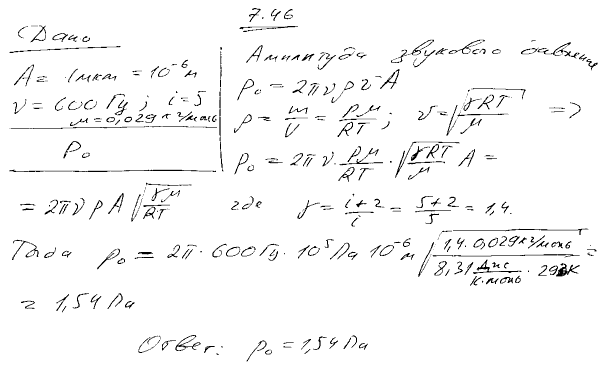 7.46
Дано
A = 1мкм = 10⁻⁶ м
ν = 600 Гц; i = 5
μ = 0,029 кг/моль
P₀
Амплитуда звукового давления
P₀ = 2πνρυA
ρ = m/V = pμ/RT; υ = √(γRT/μ) =>
P₀ = 2πν · pμ/RT · √(γRT/μ) A =
= 2πνpA √(γμ/RT) где γ = (i+2)/i = (5+2)/5 = 1,4.
Тогда p₀ = 2π · 600 Гц · 10⁵ Па 10⁻⁶ м √(1,4 · 0,029 кг/моль / 8,31 Дж/К·моль · 293К) =
= 1,54 Па
Ответ: p₀ = 1,54 Па